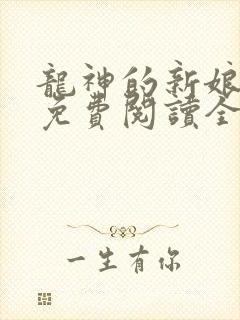 龍神的新娘
免費閱讀全
一生有你